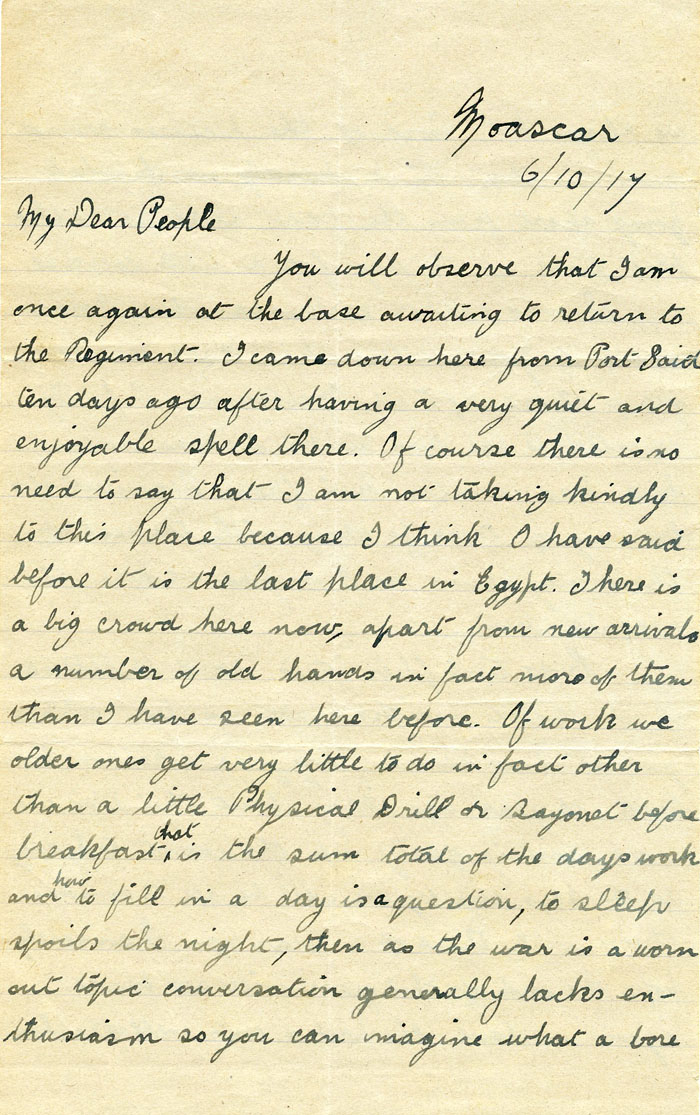 Moascar
6/10/17
My Dear People
You will observe that I am
once again at the base awaiting to return to
the Regiment. I came down here from Port Said
ten days ago after having a very quiet and
enjoyable spell there. Of course there is no
need to say that I am not taking kindly
to this place because I think I have said
before it is the last place in Egypt. There is
a big crowd here now, apart from new arrivals
a number of old hands in fact more of them
than I have seen here before. Of work we
older ones get very little to do in fact other
than a little Physical Drill or Bayonet before
breakfast, that is the sum total of the days work
and how to fill in a day is a question, to sleep
spoils the night, then as the war is a worn
out topic conversation generally lacks en-
thusiasm so you can imagine what a bore